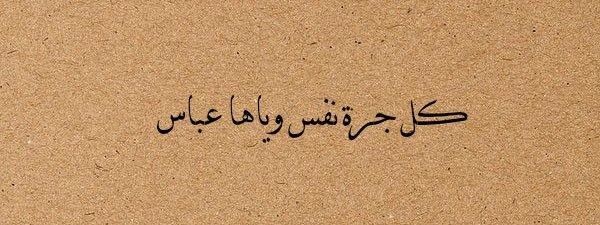 كل جرة نفس وياها عباس